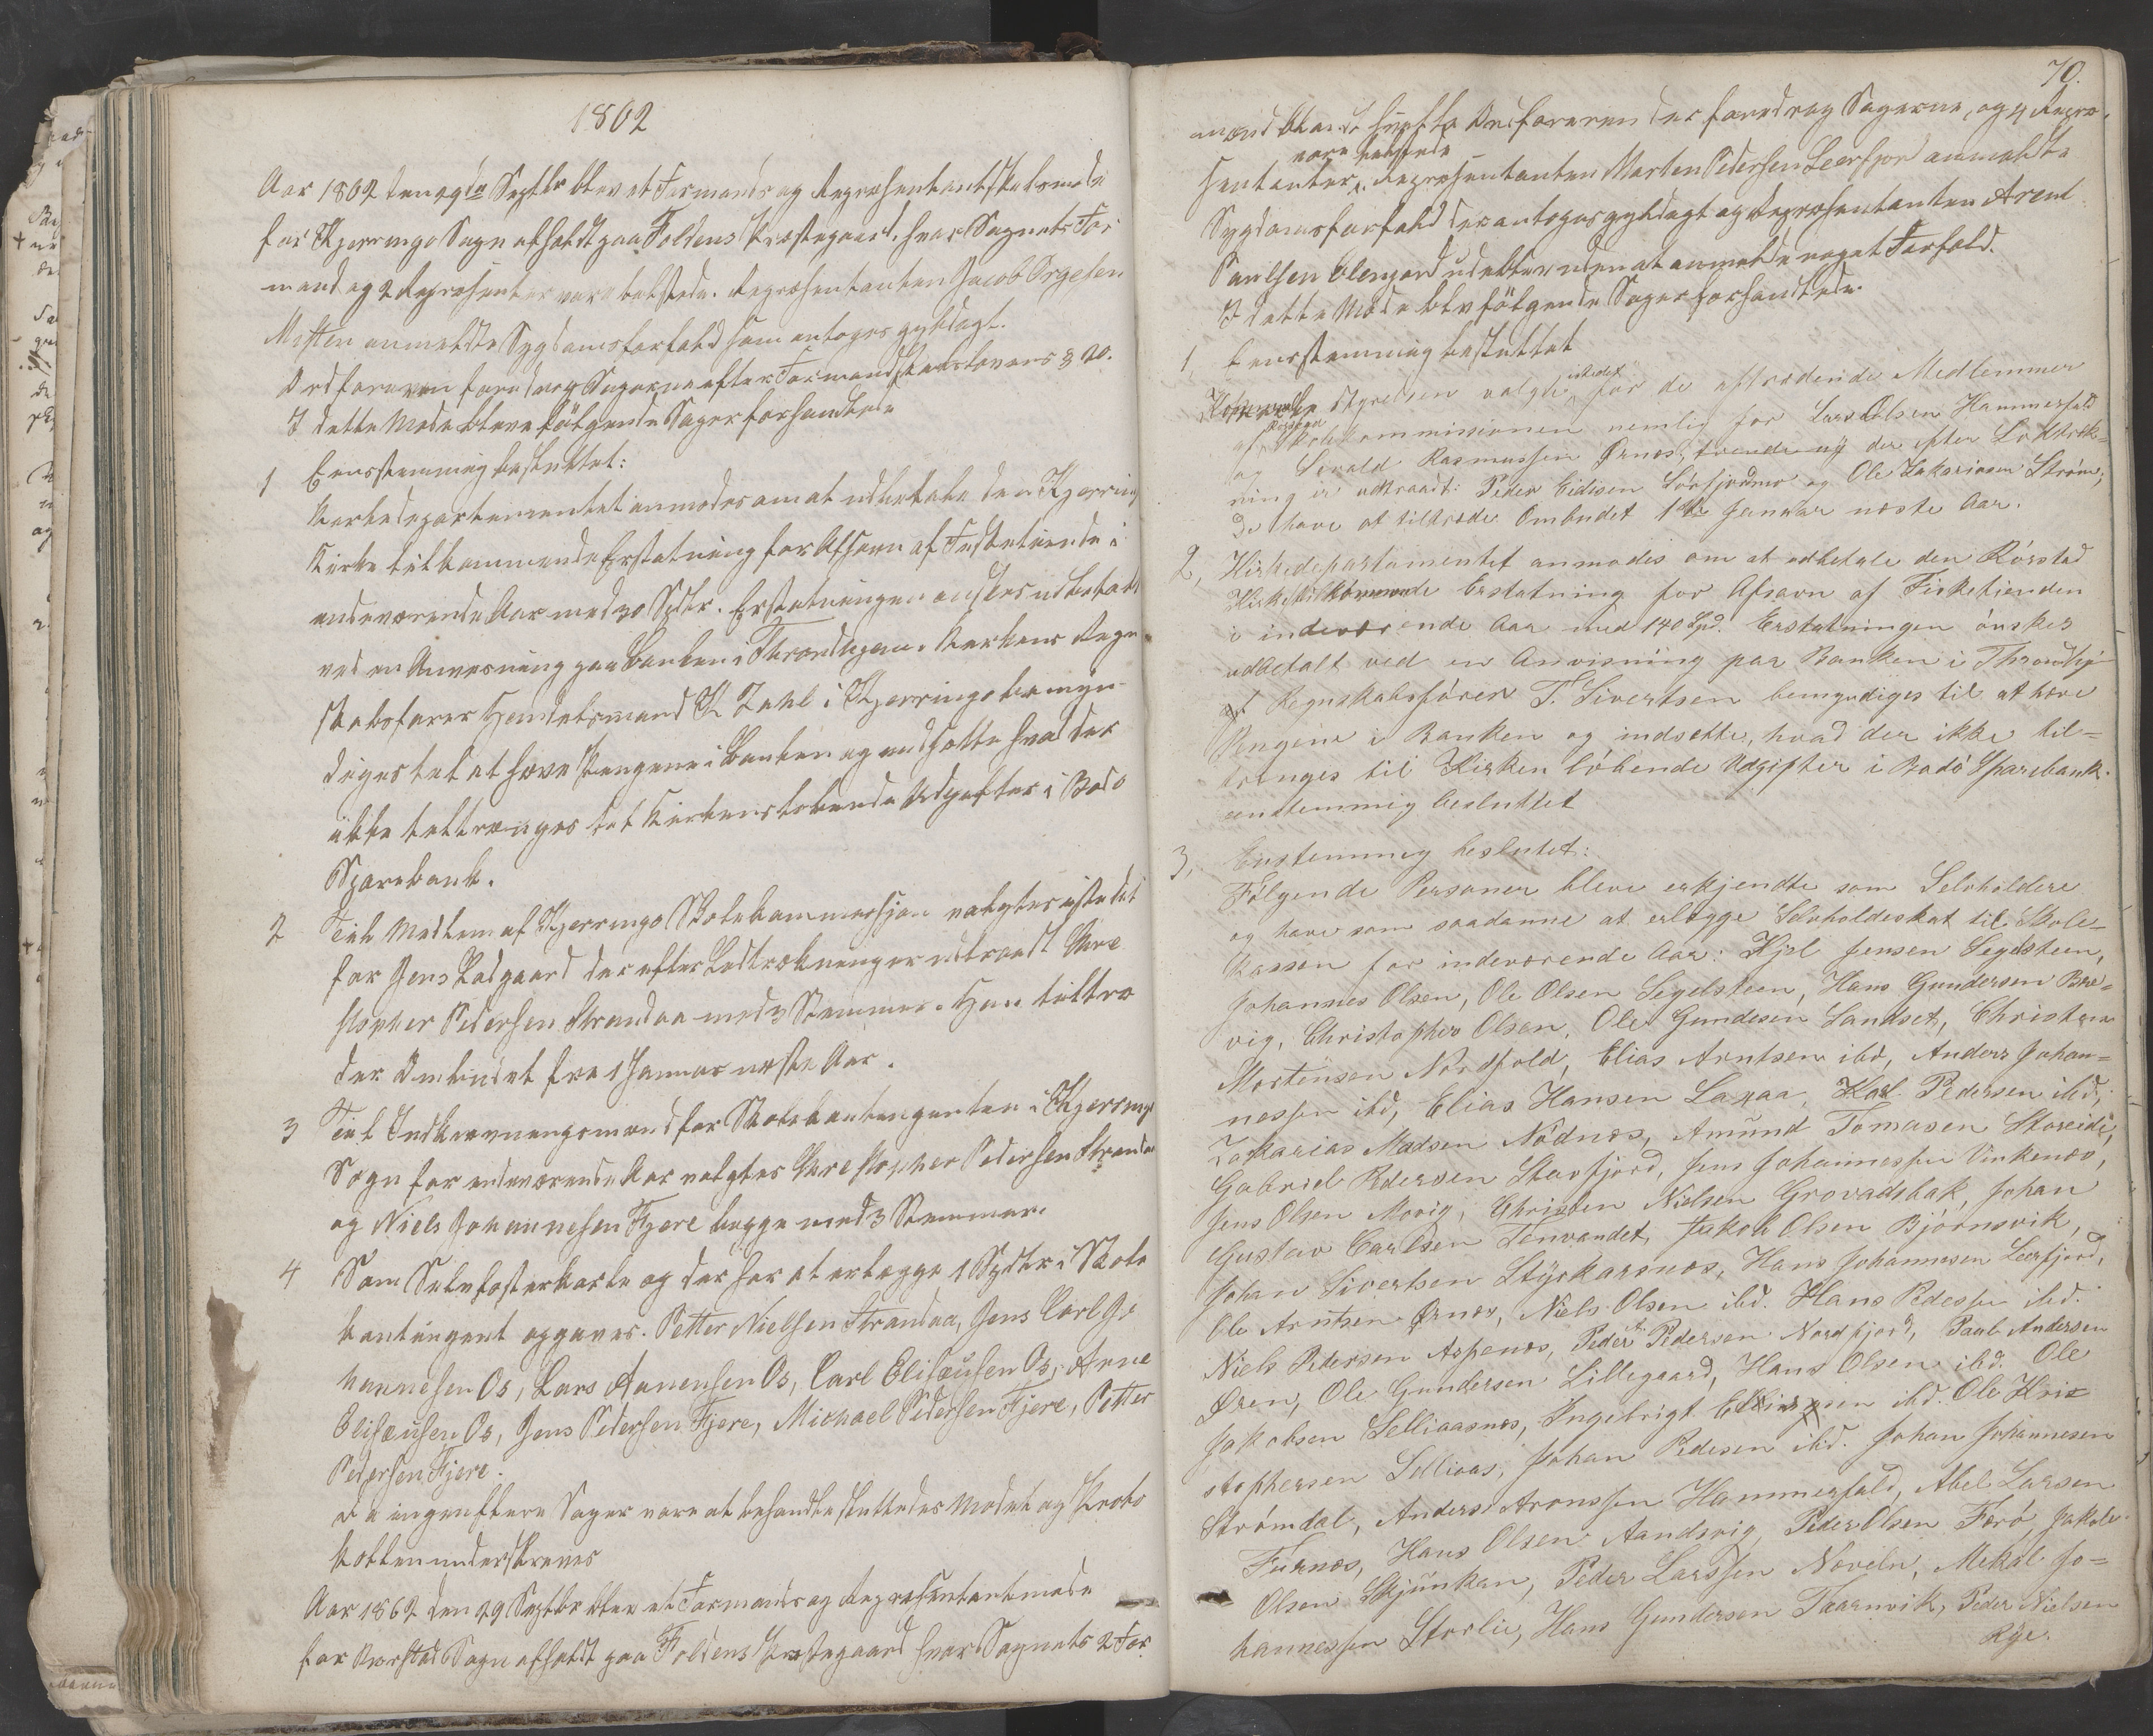 1862
Aar 1862 den 29de Septbr blev et Formands og Repræsentantskabsmøde
for Kjerringø Sogn afholdt paa Foldens Præstegaard, hvor Sognets For
mand og 2 Repræsenter vare tilstede. Repræsentanten Jacob Ørgesen
Misten anmeldte Sygdomsforfald som antoges gyldigt.
Ordføreren foredrog Sagerne efter Formandskabslovens § 20.
I dette Møde bleve følgende Sager forhandlede
1 Eenstemmig besluttet:
Kirkedepartementet anmodes om at udbetale den Kjerringø
Kirke tilkommende Erstatning for Afsavn af Fisketiende i
indeværende Aar med 30 Spdlr. Erstatningen ønskes udbetalt
ved en Anvisning paa Banken i Throndhjem. Kirkens Regn
skabsfører Handelsmand K Zahl i Kjerringø bemyn
diges til at hæve Pengene i Banken og indsætte hvad der
ikke tiltrænges til Kirkens løbende Udgifter i Bodø
Sparebank.
2 Til Medlem af Kjerringø Skolekommission valgtes istedet
for Jens Ladgaard der efter Lodtrækning er udtraadt Chri
stopher Pedersen Strandaa med 3 Stemmer. Han tiltræ
der Ombudet fra 1 Januar næste Aar.
3 Til Indkrævningsmænd for Skolekontingenten i Kjerringø
Sogn for indeværende Aar valgtes Christopher Pedersen Strandaa
og Niels Johannesen Fjære begge med 3 Stemmer.
4 Som Selvfosterkarle og der har at erlægge 1 Spdlr i Skole
kontingent opgaves. Petter Nielsen Strandaa, Jens Carl Jo
hannesen Os, Lars Arnensen Os, Carl Elisæusen Os, Arne
Elisæusen Os, Jens Pedersen Fjære, Michael Pedersen Fjære, Petter
Pedersen Fjære.
Da ingen flere Sager vare at behandle sluttedes Mødet og Proto
kollen underskreves
Aar 1862 den 29 Septbr blev et Formands og Repræsentantmøde
for Rørstad Sogn afholdt paa Foldens Præstegaard hvor Sognets 2 For
70.
mænd blandt hvilke Ordføreren der foredrog Sagerne, og 4 Repræ
vare tilstede
sentanter. Repræsentanten Morten Pedersen Leerfjord anmeldte
Sygdomsforfald der antoges gyldigt og Repræsentanten Arent
Paulsen Elvegaard udeblev uden at anmelde noget Forfald.
I dette Møde blev følgende Sager forhandlede.
1, Eenstemmig besluttet
istedet
styrelsen valgte for de aftrædende Medlemmer
Rørstad
af Skolekommissionen nemlig for Lars Olsen Hammerfald
og Sivald Rasmussen Ørnes, der efter Lodtræk=
ning er udtraadt: Peder Eidisen Sørfjordmo og Ole Zakariasen Strøm,
De have at tiltræde Ombudet 1ste Januar næste Aar.
2, Kirkedepartementet anmodes om at udbetale den Rørstad
Kirke tilkommende Erstatning for Afsavn af Fisketienden
i indeværende Aar med 140 Spd. Erstatningen ønskes
udbetalt ved en Anvisning paa Banken i Throndhj
Regnskabsfører T. Sivertsen bemyndiges til at hæve
Pengene i Banken og indsætte, hvad der ikke til=
trænges til Kirken løbende Udgifter i Bodø Sparebank.
enstemmig besluttet
3, Enstemmig beslutet:
Følgende Personer bleve erkjendte som Selvholdere
og have som saadanne at erlægge Selvholdeskat til Skole-
kassen for indeværende Aar: Kjel Jensen Segelsteen,
Johannes Olsen, Ole Olsen Segelsteen, Hans Gundersen Bre=
vig, Christopher Olsen, Ole Gundesen Landset, Christen
Mortensen Nordfold, Elias Arntsen ibd, Anders Johan=
nessen ibd, Elias Hansen Laxaa, Karl Pedersen ibd,
Zakarias Madsen Nødnæs, Amund Tomasen Storeide,
Gabriel Pdersen Stavfjord, Jens Johannessen Vinkenæs,
Jens Olsen Movig, Christen Nielsen Grovadsbak, Johan
Gustav Carlsen Tenvandet, Jakob Olsen Bjørnsvik,
Johan Sivertsen Styrkarsnæs, Hans Johannesen Leerfjord,
Ole Arntsen Ørnæs, Niels Olsen ibd. Hans Pedessen ibd.
Niels Pedersen Aspenæs, Peder Pedersen Nordfjord, Paul Andersen
Øren, Ole Gundersen Lillegaard, Hans Olsen ibd. Ole
Jakobsen Selliaasnæs, Ingebrigt ibd. Ole Kri
stophersen Selliaas, Johan Pedesen ibd. Johan Johannesen
Strømdal, Anders Aronssen Hammerfald, Abel Larsen
Furnæs, Hans Olsen Aandsvig, Peder Olsen Færø, Jakob
Olsen Skjunken, Peder Larssen Noveln, Mikal Jo=
hannessen Storlie, Hans Gundersen Taarnvik, Peder Nielsen
Rye.